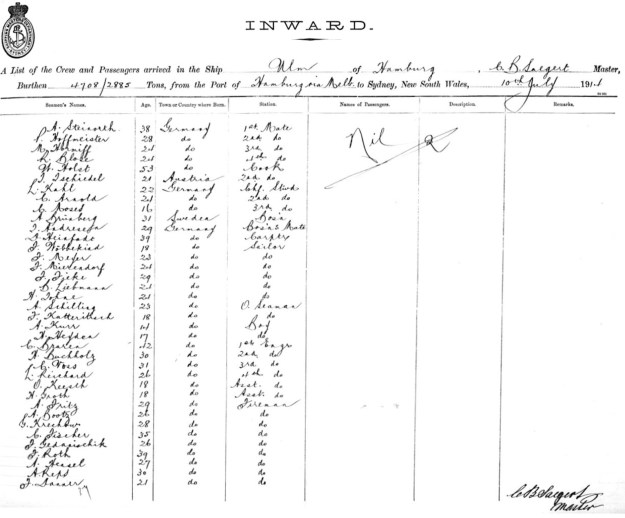 INWARD.
A List of the Crew and Passengers arrived in the Ship Ulm of Hamburg, C B Saegert Master,
Burthen 4708/2885 Tons, from the Port of Hamburg via Melb. to Sydney, New South Wales, 10th July 1911
Seamen's Names. Age. Town or Country where Born. Station. Names of Passengers. Description. Remarks.
A. Steinorth 38 Germany 1st Mate Nil
P. Hoffmeister 28 do 2nd do
M. 24 do 3rd do
Blose 24 do 4th do
W. Holst 53 do Cook
J. Tschiedel 21 Austria 2nd do
L. Kahl 22 Germany Chf. Stwd
C. Arnold 24 do 2nd do
C. Moses 16 do 3rd do
A. Brusberg 31 Sweden Bos'n
J. Andresen 29 Germany Bos'n's Mate
39 do Carptr
J. Wobbekind 18 do Sailor
J. Meyer 23 do do
J. Mierendorf 24 do do
J. 29 do do
B. Liebmann 21 do do
H. 21 do do
A. Schilling 23 do O. Seaman
J. 18 do do
A. Kurr 14 do Boy
17 do
C. 42 do 1st Engr
H. Buchholz 30 do 2nd do
C. Voss 31 do 3rd do
L. Reichard 26 do 4th do
O. 18 do Asst. do
H. Groth 18 do Asst. do
A. Fritz 29 do Fireman
A. Bootz 26 do do
G. 28 do do
C. Fischer 35 do do
J. 26 do do
J. Roth 39 do do
A. Hensel 27 do do
A. Reps 30 do do
J. 21 do do
C B Saegert
Master